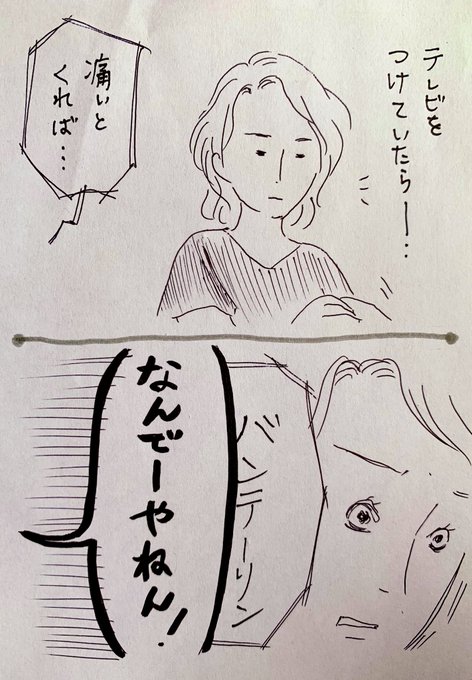 テレビを
つけていたらー…
痛いと
くれば…
バンテーリン
なんでーやねん！